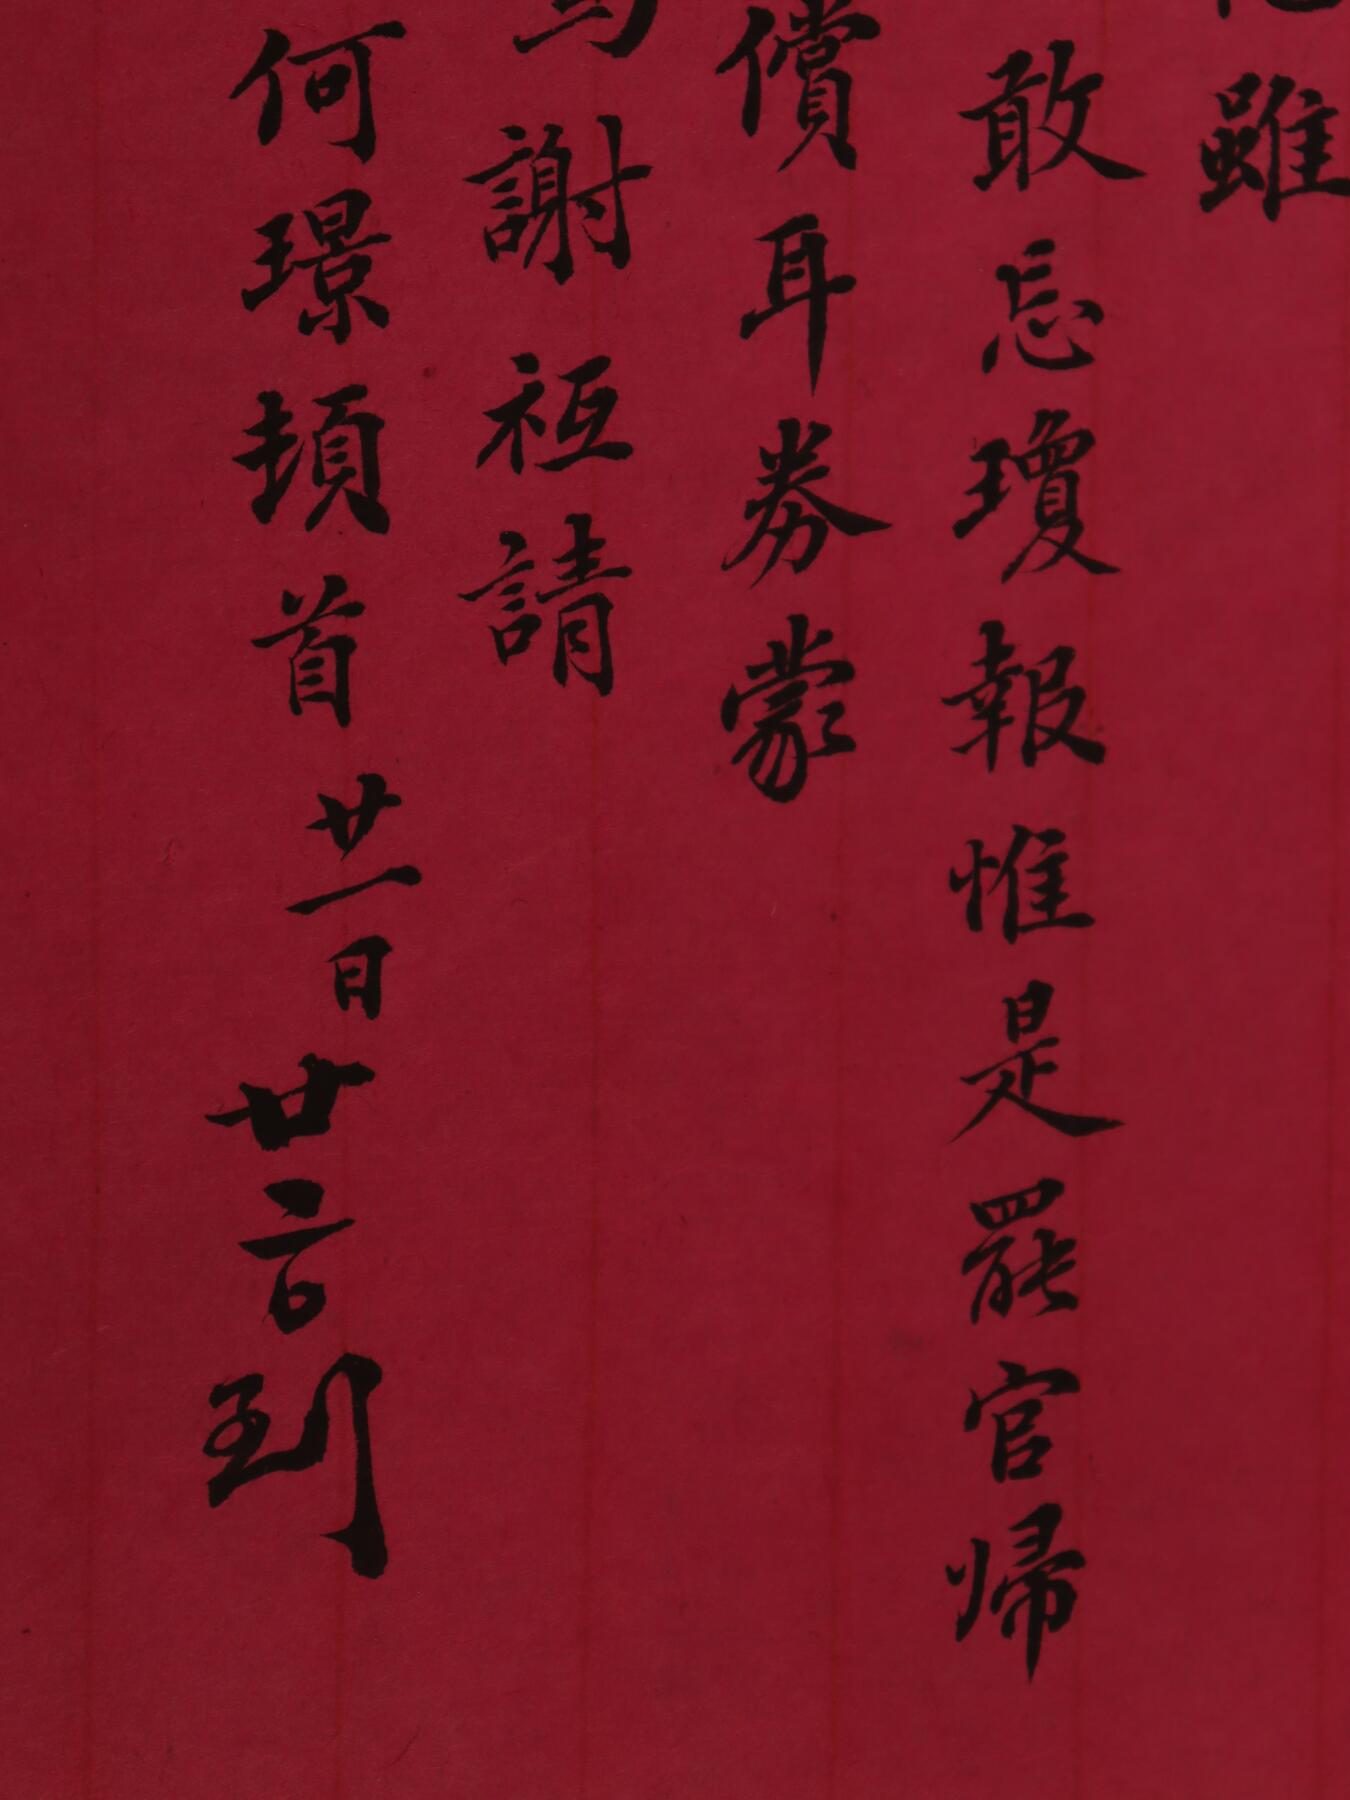 雖
敢忘瓊報惟是罷官歸
償耳劵蒙
謝祗請
何璟頓首廿一日廿二日到